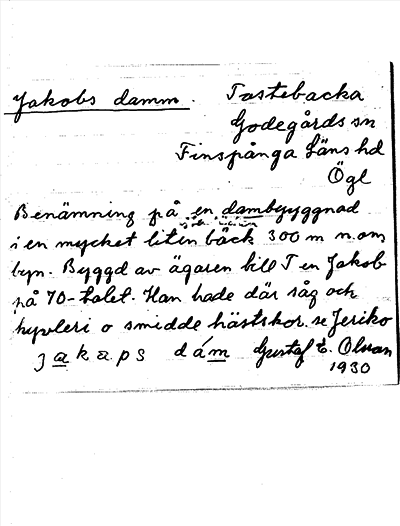 Jakobs damm. Tostebacka
Godegårds sn
Finspånga Läns hd
Ögl
Benämning på en dambyggnad
i en mycket liten bäck 300 m n. om
byn. Byggd av ägaren till T en Jakob
på 70-talet. Han hade där såg och
hyvleri o smidde hästskor. se Jeriko
jakaps dám Gustaf E. Olsson
1930